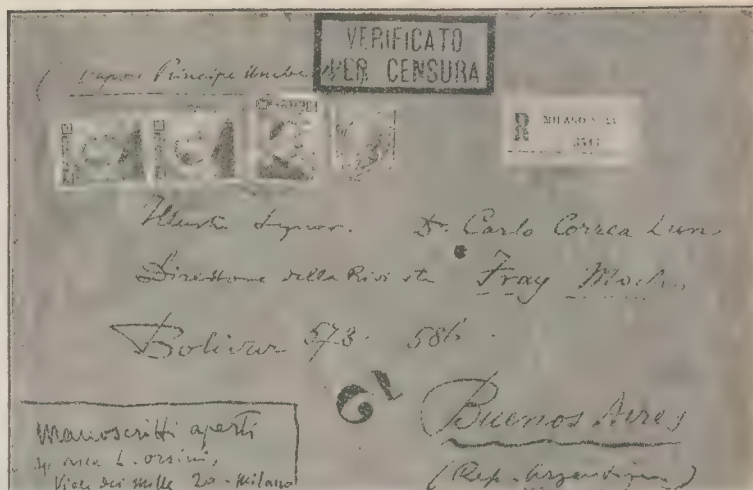 VERIFICATO
PER CENSURA
Vapore Principe Umberto
R MILANO
Illustre Signor. Dr. Carlo Correa Luna
Direttore della Rivista Fray Mocho
Bolivar 573. 586.
Buenos Aires
(Rep. Argentina)
Manoscritti aperti
L. orsini,
Viale dei mille 20 - Milano